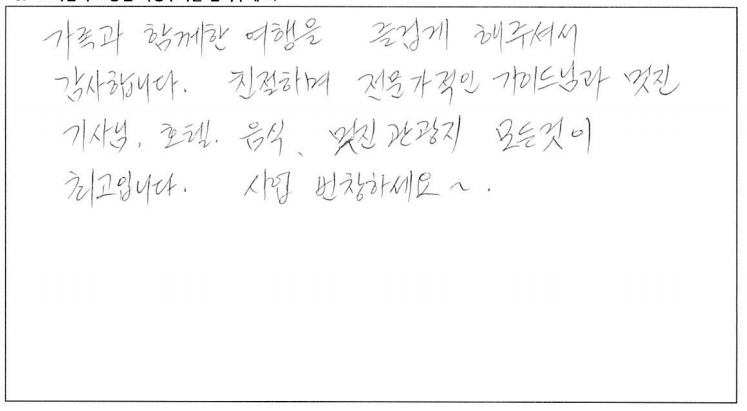 가족과 함께한 여행을 즐겁게 해주셔서
감사합니다. 친절하며 전문가적인 가이드님과 멋진
기사님, 호텔. 음식, 멋진 관광지 모든것이
최고입니다. 사업 번창하세요~.